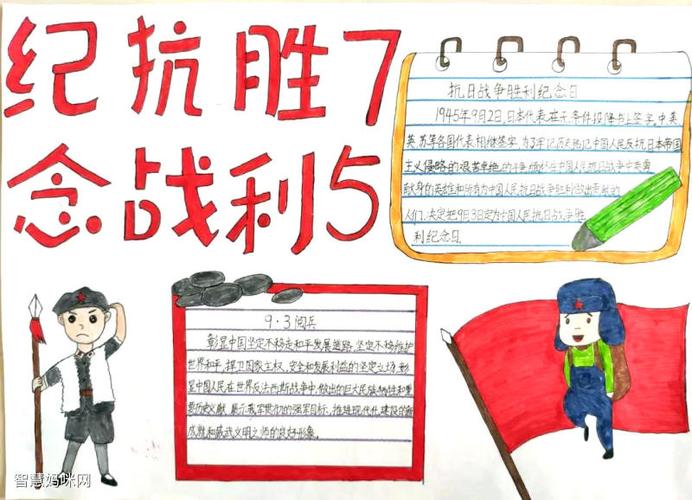 纪抗胜7
念战利5
抗日战争胜利纪念日
1945年9月2日,日本代表在无条件投降书上签字,中、美
英、苏等各国代表相继签字,为了牢记历史,铭记中国人民反抗日本帝国
主义侵略的艰苦卓绝的斗争,缅怀在中国人民抗日战争中英勇
献身的英雄和所有为中国人民抗日战争胜利做出贡献的
人们,决定把9月3日定为中国人民抗日战争胜
利纪念日。
9·3阅兵
彰显中国坚定不移走和平发展道路,坚定不移维护
世界和平,捍卫国家主权,安全和发展利益的坚定立场,彰
显中国人民在世界反法西斯战争中,做出的巨大民族牺牲和重
要历史贡献,展示我军贯彻的强军目标,推进现代化建设的新
成就和威武文明之师的良好形象。
智慧妈咪网